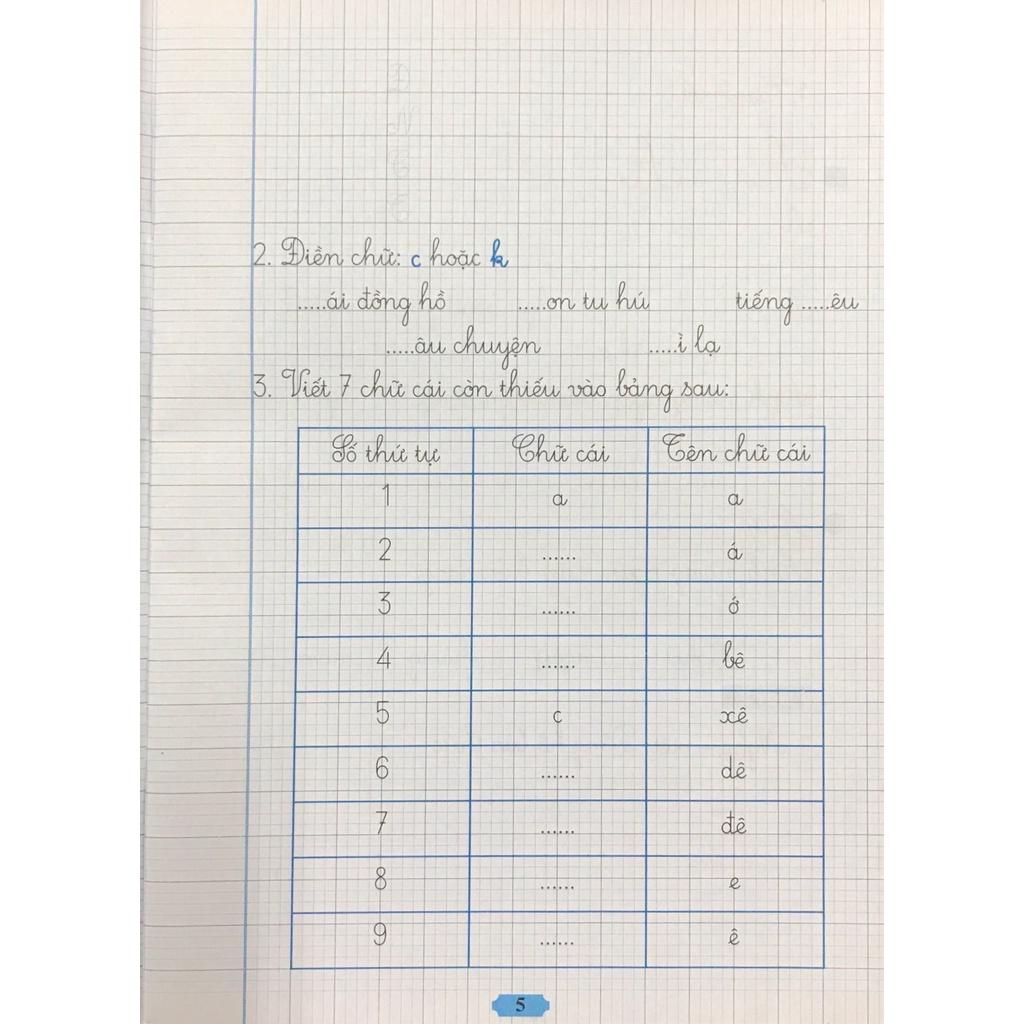 2. Điền chữ: c hoặc k
.....ái đồng hồ .....on tu hú tiếng .....êu
.....âu chuyện .....ì lạ
3. Viết 7 chữ cái còn thiếu vào bảng sau:
Số thứ tự Chữ cái Tên chữ cái
1 a a
2 ...... á
3 ...... ớ
4 ...... bê
5 c xê
6 ...... dê
7 ...... đê
8 ...... e
9 ...... ê
5